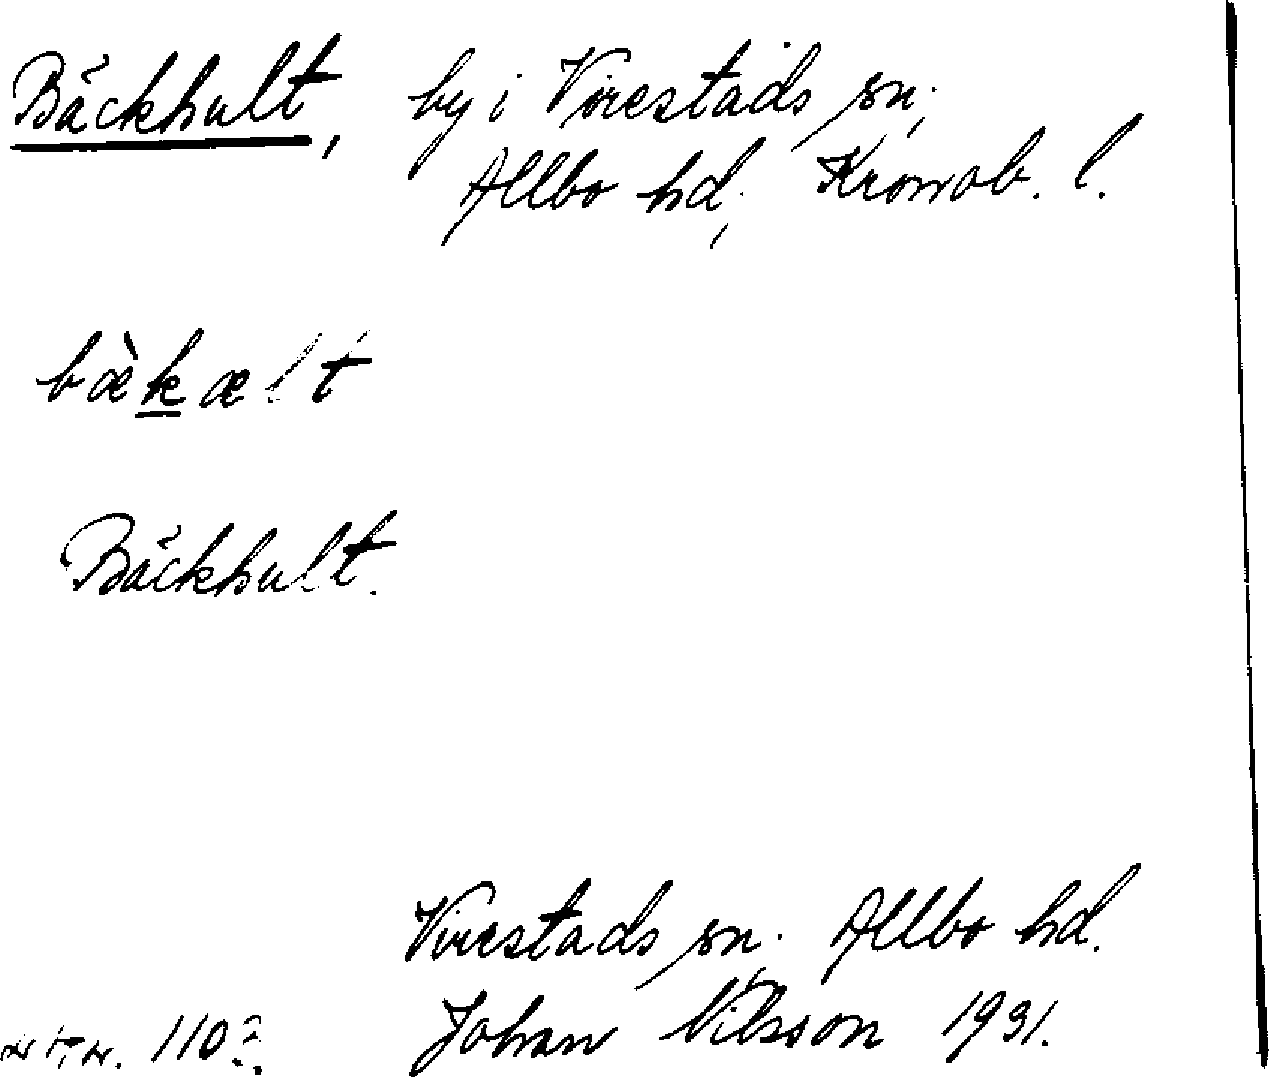 Bäckhult, by i Virestads sn,
Allbo hd, Kronob. l.
bæ̀kælt
Bäckhult.
Virestads sn. Allbo hd.
Johan Nilsson 1931.